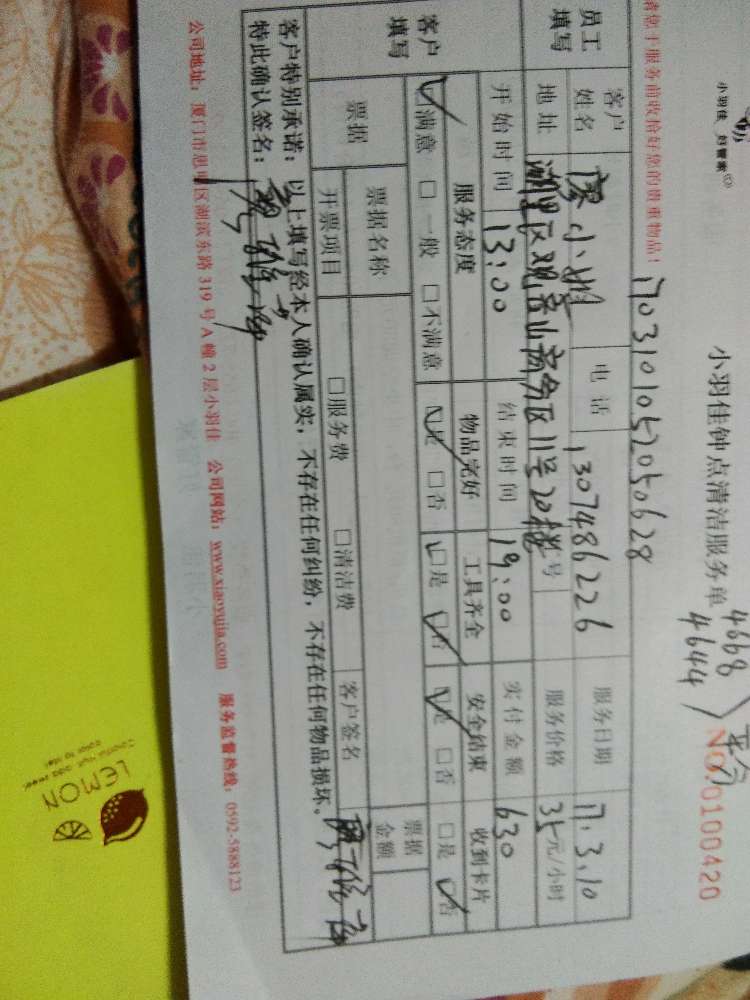 小羽佳 好管家
小羽佳钟点清洁服务单
4668
4644
平分
NO.0100420
者您于服务前收拾好您的贵重物品!
170310105205 0628
员工填写
客户姓名 廖小姐 电话 13074862226 服务日期 17.3.10
地址 湖里区观音山商务区11号20楼 号 服务价格 35元/小时
开始时间 13:00 结束时间 19:00 实付金额 630
客户填写
服务态度 物品完好 工具齐全 安全结束 收到卡片
☑满意 □一般 □不满意 ☑是 □否 □是 ☑否 ☑是 □否 □是 ☑否
票据 票据名称 票据金额
开票项目 □服务费 □清洁费 客户签名
客户特别承诺:以上填写经本人确认属实,不存在任何纠纷,不存在任何物品损坏。
特此确认签名:
公司地址:厦门市思明区湖滨东路319号A幢2层小羽佳 公司网站:www.xiaoyujia.com 服务监督热线:0592-5888123
LEMON